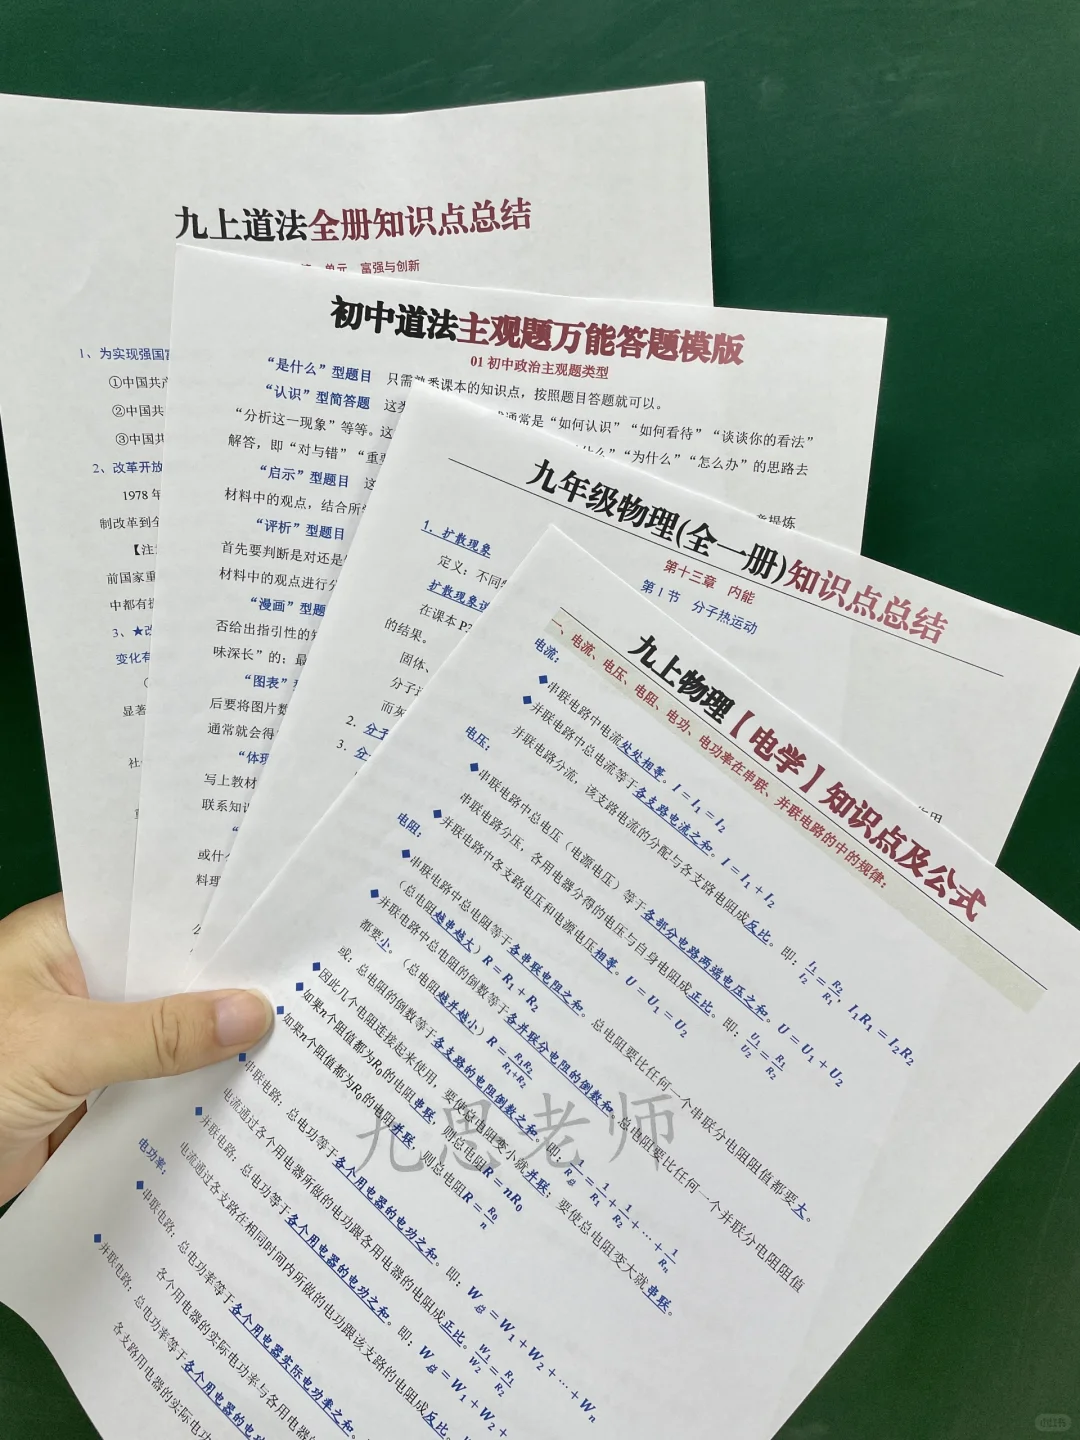 九上道法全册知识点总结
单元 富强与创新
1、为实现强国
①中国共产
②中国共
③中国共
2、改革开放
1978年
制改革到全
【注
前国家重
中都有
3、★改
变化有
显著
初中道法主观题万能答题模版
01 初中政治主观题类型
“是什么”型题目 只需熟悉课本的知识点，按照题目答题就可以。
“认识”型简答题 这类
通常是“如何认识”“如何看待”“谈谈你的看法”
“分析这一现象”等等。这
“为什么”“怎么办”的思路去
解答，即“对与错”“重要
“启示”型题目 这
材料中的观点，结合所学
“评析”型题目
首先要判断是对还是
材料中的观点进行分
“漫画”型题
否给出指引性的知
味深长”的；最
“图表”
后要将图片数
通常就会得
“体现
写上教材
联系知识
或什么
料理
九年级物理(全一册)知识点总结
第十三章 内能
第1节 分子热运动
1. 扩散现象
定义：不同
扩散现象说
在课本P3
的结果。
固体、
分子
而
2. 分子
3. 分
九上物理【电学】知识点及公式
一、电流、电压、电阻、电功、电功率在串联、并联电路的中的规律：
电流：
■串联电路中电流处处相等。I=I₁=I₂
■并联电路中总电流等于各支路电流之和。I=I₁+I₂
并联电路分流，该支路电流的分配与各支路电阻成反比。即：I₁/I₂=R₂/R₁，I₁R₁=I₂R₂
电压：
■串联电路中总电压（电源电压）等于各部分电路两端电压之和。U=U₁+U₂
串联电路分压，各用电器分得的电压与自身电阻成正比。即：U₁/U₂=R₁/R₂
■并联电路中各支路电压和电源电压相等。U=U₁=U₂
电阻：
■串联电路中总电阻等于各串联电阻之和。总电阻要比任何一个串联分电阻阻值都要大。
（总电阻越串越大）R=R₁+R₂
■并联电路中总电阻的倒数等于各并联分电阻的倒数和。总电阻要比任何一个并联分电阻阻值
都要小。（总电阻越并越小）R=R₁R₂/R₁+R₂
或：总电阻的倒数等于各支路的电阻倒数之和。即：1/R总=1/R₁+1/R₂+…+1/Rn
■因此几个电阻连接起来使用，要使总电阻变小就并联；要使总电阻变大就串联。
■如果n个阻值都为R₀的电阻串联，则总电阻R=nR₀
■如果n个阻值都为R₀的电阻并联，则总电阻R=R₀/n
■串联电路：总电功等于各个用电器的电功之和。即：W总=W₁+W₂+…+Wn
电流通过各个用电器所做的电功跟各用电器的电阻成正比。W₁/W₂=R₁/R₂
■并联电路：总电功等于各个用电器的电功之和。即：W总=W₁+W₂+
电流通过各支路在相同时间内所做的电功跟该支路的电阻成反比。
电功率：
■串联电路：总电功率等于各个用电器实际电功率之和。
各个用电器的实际电功率与各用电器
■并联电路：总电功率等于各个用电器的电功
各支路用电器的实际电功
九思老师
小红书